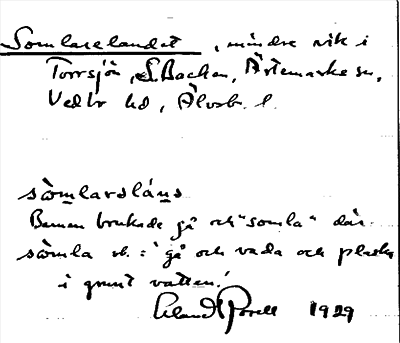 Somlarelandet, mindre vik i
Torrsjön, S. Backen, Ärtemarks sn,
Vedbo hd, Älvsb. l.
sòmlarslán̲s̲
Barnen brukade gå och "somla" där.
sòmla vb. = 'gå och vada och plaska
i grunt vatten.'
Erland Rosell 1929